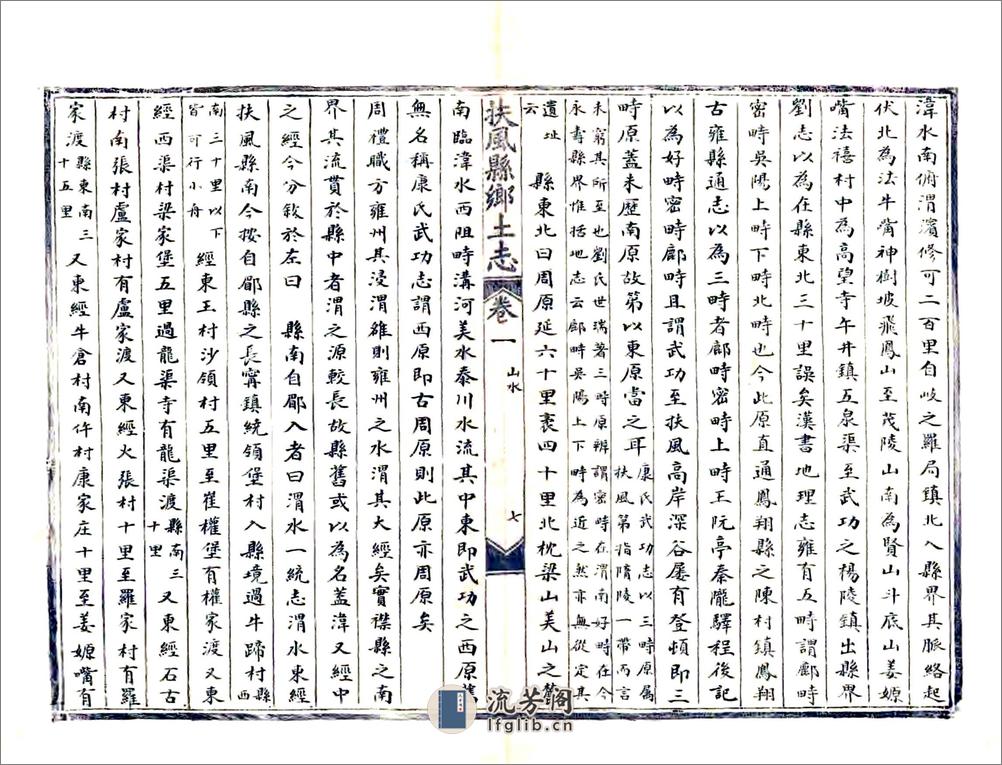 湋水南俯渭濱修可二百里自岐之羅局鎮北入縣界其脈絡起
伏北為法牛嘴神樹坡飛鳳山至茂陵山南為賢山斗底山姜嫄
嘴法禧村中為高望寺午井鎮五泉渠至武功之楊陵鎮出縣界
劉志以為在縣東北三十里誤矣漢書地理志雍有五畤謂鄜畤
密畤吳陽上畤下畤北畤也今此原直通鳳翔縣之陳村鎮鳳翔
古雍縣通志以為三畤者鄜畤密畤上畤王阮亭秦隴驛程後記
以為好畤密畤鄜畤且謂武功至扶風高岸深谷屢有登頓即三
畤原蓋未歷南原故第以東原當之耳
康氏武功志以三畤原屬
扶風第指隋陵一帶而言
未窮其所至也劉氏世瑞著三畤原辨謂密畤在渭南好畤在今
永壽縣界惟括地志云鄜畤吳陽上下畤為近之然亦無從定其
遺址
云
縣東北曰周原延六十里袤四十里北枕梁山美山之麓
扶風縣鄉土志
卷一
山水
七
南臨湋水西阻畤溝河美水泰川水流其中東即武功之西原舊
無名稱康氏武功志謂西原即古周原則此原亦周原矣
周禮職方雍州其浸渭雒則雍州之水渭其大經矣實襟縣之南
界其流貫於縣中者渭之源較長故縣舊或以為名蓋湋又經中
之經今分敘於左曰
縣南自郿入者曰渭水一統志渭水東經
扶風縣南今按自郿縣之長寧鎮統領堡村入縣境過牛蹄村
縣西
南三十里以下
皆可行小舟
經東王村沙領村五里至崔權堡有權家渡又東
經西渠村梁家堡五里過龍渠寺有龍渠渡
縣南三
十里
又東經石古
村南張村盧家村有盧家渡又東經火張村十里至羅家村有羅
家渡
縣東南三
十五里
又東經牛倉村南仵村康家庄十里至姜嫄嘴有
流芳閣
lfglib.cn